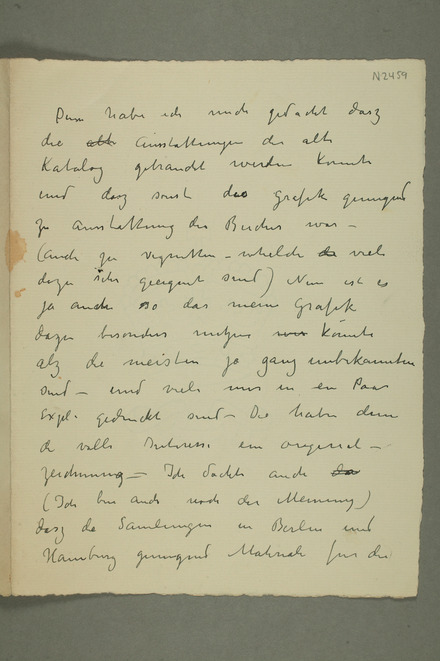 N2459
Denn habe ich auch gedacht dasz
die alte Ausstattungen der alte
Katalog gebraucht werden könnte
und dasz sonst die Grafik genugend
zu ausstattung des Buches war –
(auch zu vignetten – welche da viele
dazu sehr geeignet sind) Nun ist es
ja auch so das meine Grafik
dazu besonders nutzen könnte
alz die meisten ja ganz unbekannten
sind – und viele nur in en Paar
Expl. gedruckt sind – Die haben dem
d volle Interesse ein original –
zeichnung – Ich dachte auch da
(Ich bin auch noch der Meinung)
dasz da Samlungen in Berlin und
Hamburg genugend Materiale fur die